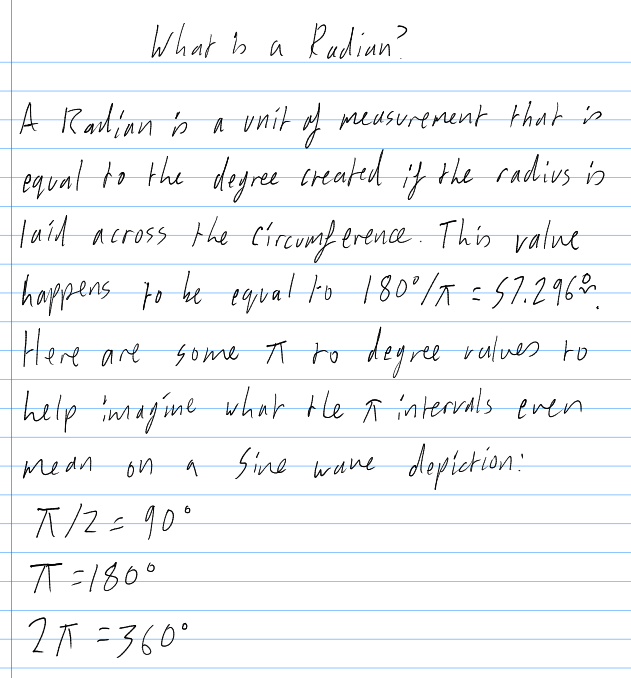 What is a Radian?
A Radian is a unit of measurement that is
equal to the degree created if the radius is
laid across the circumference. This value
happens to be equal to 180°/π = 57.296°.
Here are some π to degree values to
help imagine what the π intervals even
mean on a sine wave depiction:
π/2 = 90°
π = 180°
2π = 360°